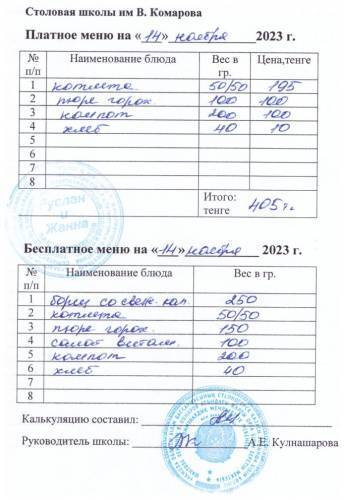 Столовая школы им В. Комарова
Платное меню на «14» ноября 2023 г.
№ п/п Наименование блюда Вес в гр. Цена,тенге
1 котлета 50/50 195
2 пюре горох. 100 100
3 компот 200 100
4 хлеб 40 10
5
6
7
8
Итого: тенге 405 тг.
Руслан и Жанна
Бесплатное меню на «14» ноября 2023 г.
№ п/п Наименование блюда Вес в гр.
1 борщ со свеж. кап. 250
2 котлета 50/50
3 пюре горох. 150
4 салат витам. 100
5 компот 200
6 хлеб 40
7
8
Калькуляцию составил:
Руководитель школы: А.Е. Кулнашарова